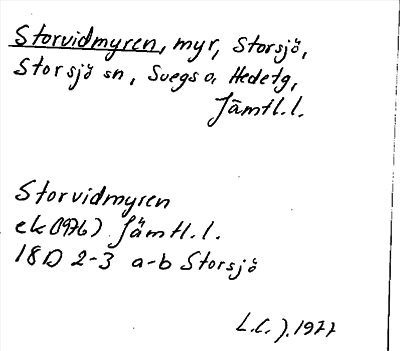 Storvidmyren, myr, Storsjö,
Storsjö sn, Svegs o. Hedetg,
Jämtl.l.
Storvidmyren
ek(1976) Jämtl.l.
18D 2-3 a-b Storsjö
L.C.J.1977